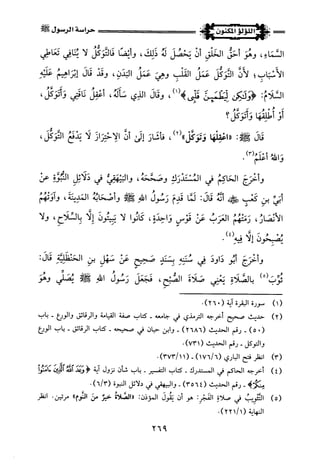 اللؤلؤ المكنون
حراسة الرسول ﷺ
السَّمَاءِ، وَهُوَ أَحَقُّ الخَلْقِ أَنْ يَحْصُلَ لَهُ ذَلِكَ، وَأَيْضًا فَالتَّوَكُّلُ لَا يُنَافِي تَعَاطِي
الأَسْبَابِ؛ لِأَنَّ التَّوَكُّلَ عَمَلُ القَلْبِ وَهِيَ عَمَلُ البَدَنِ، وَقَدْ قَالَ إِبْرَاهِيمُ عَلَيْهِ
السَّلَامُ: ﴿وَلَكِن لِّيَطْمَئِنَّ قَلْبِي﴾(١)، وَقَالَ الذِي سَأَلَهُ، أَعْقِلُ نَاقَتِي وَأَتَوَكَّلُ،
أَوْ أُطْلِقُهَا وَأَتَوَكَّلُ؟
قَالَ ﷺ: «اعْقِلْهَا وَتَوَكَّلْ»(٢)، فَأَشَارَ إِلَى أَنَّ الِاحْتِرَازَ لَا يَدْفَعُ التَّوَكُّلَ،
وَاللهُ أَعْلَمُ(٣).
وَأَخْرَجَ الحَاكِمُ فِي المُسْتَدْرَكِ وَصَحَّحَهُ، وَالبَيْهَقِيُّ فِي دَلَائِلِ النُّبُوَّةِ عَنْ
أُبَيِّ بنِ كَعْبٍ ﷺ أَنَّهُ قَالَ: لَمَّا قَدِمَ رَسُولُ اللهِ ﷺ وَأَصْحَابُهُ المَدِينَةَ، وَآوَتْهُمُ
الأَنْصَارُ، رَمَتْهُمُ العَرَبُ عَنْ قَوْسٍ وَاحِدَةٍ، كَانُوا لَا يَبِيتُونَ إِلَّا بِالسِّلَاحِ، وَلَا
يُصْبِحُونَ إِلَّا فِيهِ(٤).
وَأَخْرَجَ أَبُو دَاوُدَ فِي سُنَنِهِ بِسَنَدٍ صَحِيحٍ عَنْ سَهْلِ بنِ الحَنْظَلِيَّةِ قَالَ:
ثُوِّبَ(٥) بِالصَّلَاةِ يَعْنِي صَلَاةَ الصُّبْحِ، فَجَعَلَ رَسُولُ اللهِ ﷺ يُصَلِّي وَهُوَ
(١) سورة البقرة آية (٢٦٠).
(٢) حديث صحيح أخرجه الترمذي في جامعه - كتاب صفة القيامة والرقائق والورع - باب
(٥٠) - رقم الحديث (٢٦٨٦) - وابن حبان في صحيحه - كتاب الرقائق - باب الورع
والتوكل - رقم الحديث (٧٣١).
(٣) انظر فتح الباري (١٧٦/٦) - (٣٧٣/١١).
(٤) أخرجه الحاكم في المستدرك - كتاب التفسير - باب شأن نزول آية ﴿وَعَدَ اللَّهُ الَّذِينَ ءَامَنُوا
مِنكُمْ﴾ - رقم الحديث (٣٥٦٤) - والبيهقي في دلائل النبوة (٦/٣).
(٥) التَّثْوِيبُ فِي صَلَاةِ الفَجْرِ: هو أن يقُولَ المؤذن: «الصَّلَاةُ خَيْرٌ مِنَ النَّوْمِ» مرتين. انظر
النهاية (٢٢١/١).
٢٦٩